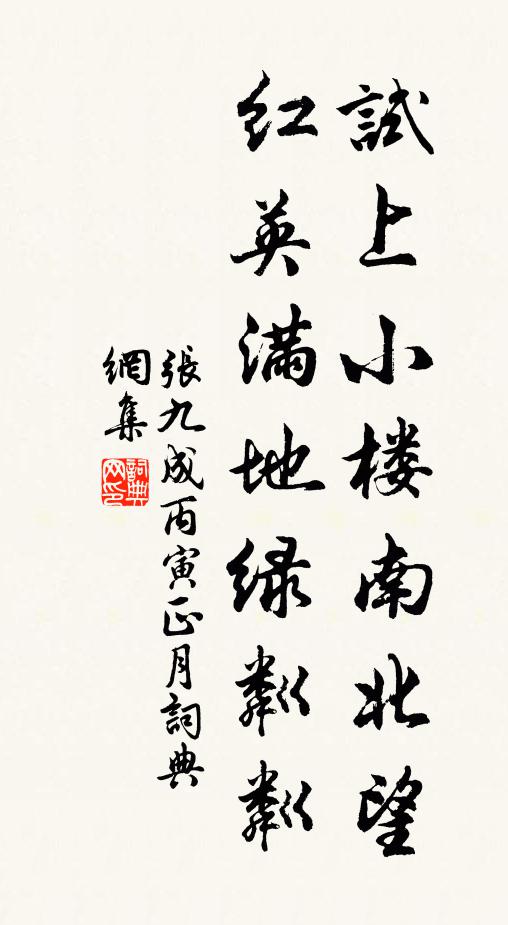 試上小楼南北望
紅英满地绿粼粼
張九成丙寅正月詞典
網集
詞典网印